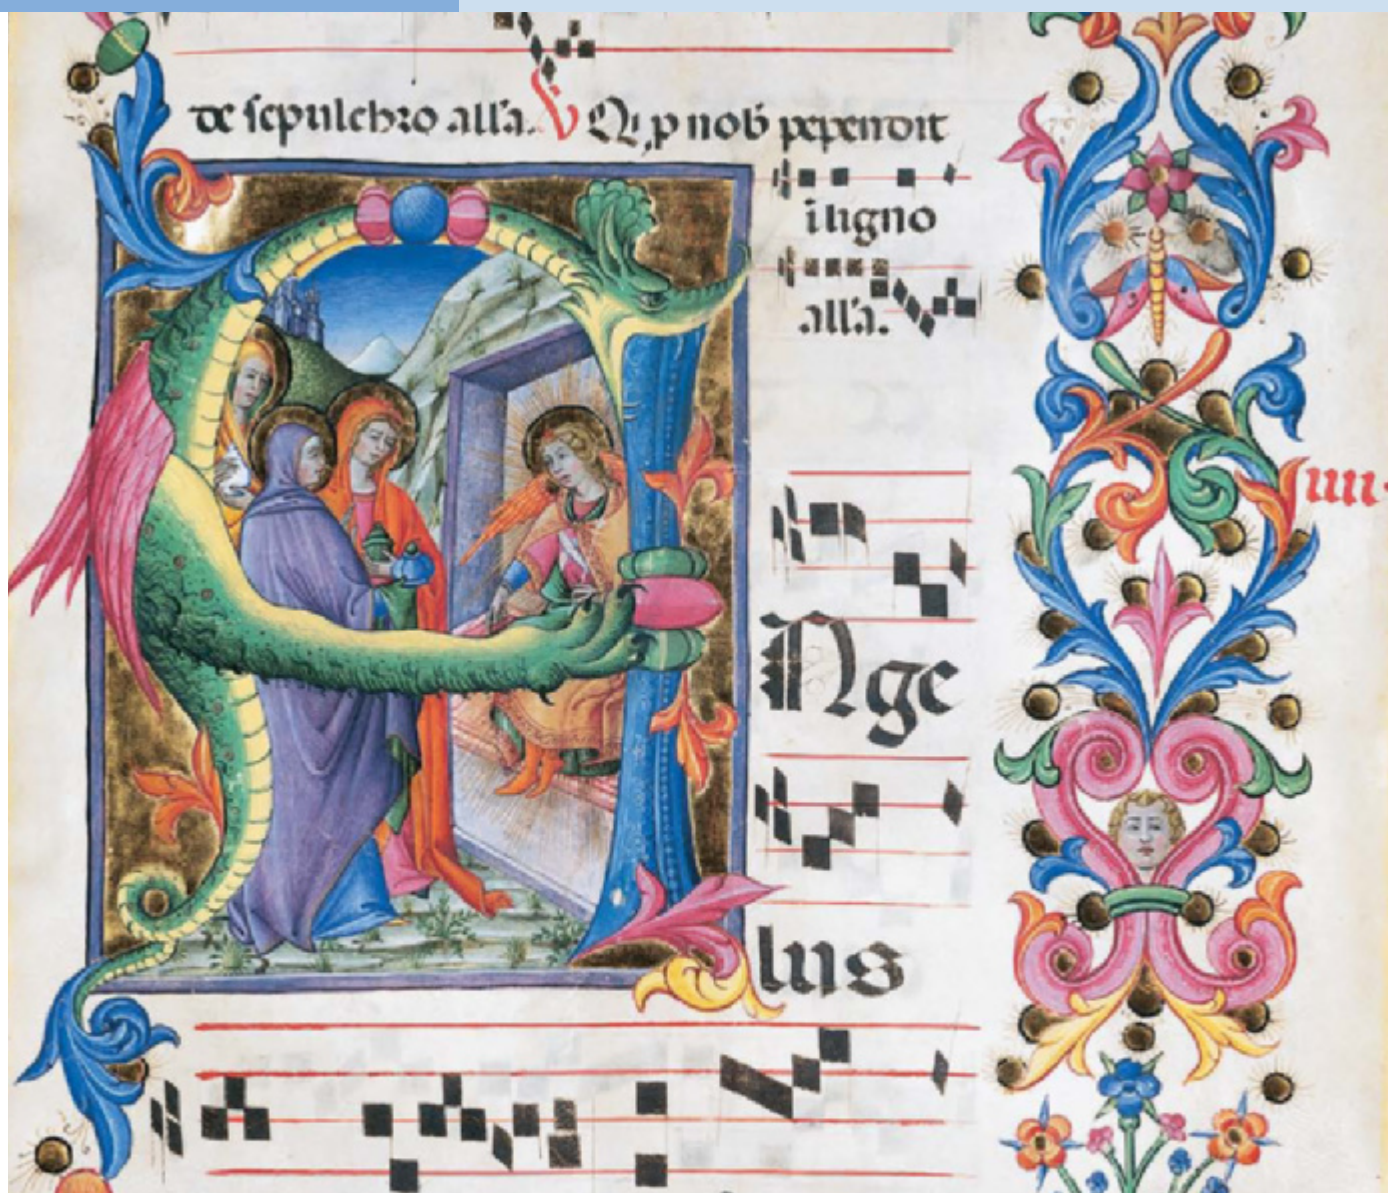 de sepulchro all'a. V Q, p nob pependit
i ligno
all'a.
iiii.
Nge
lus